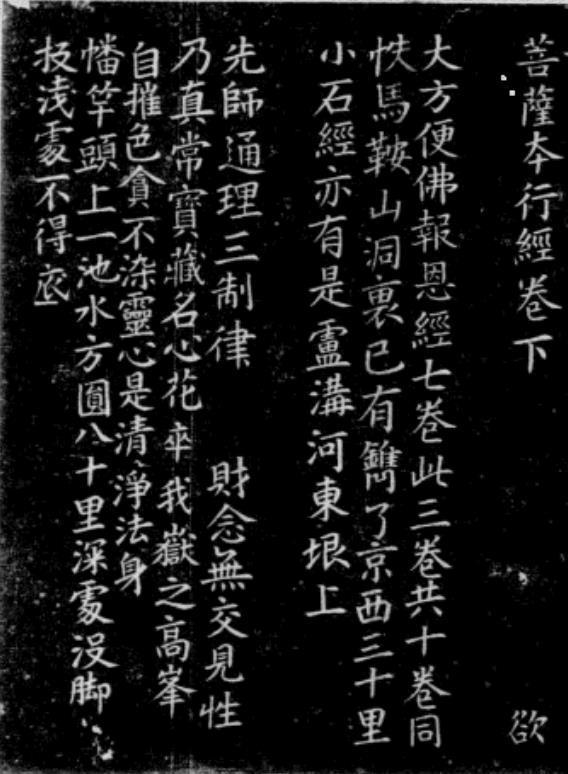 菩薩本行經卷下 欲
大方便佛報恩經七卷此三卷共十卷同
帙馬鞍山洞裏已有鐫了京西三十里
小石經亦有是盧溝河東垠上
先師通理三制律 財念無交見性
乃真常寶藏名心花卒我嶽之高峯
自摧色貪不染靈心是清淨法身
幡竿頭上一池水方圓八十里深處没脚
技淺處不得底